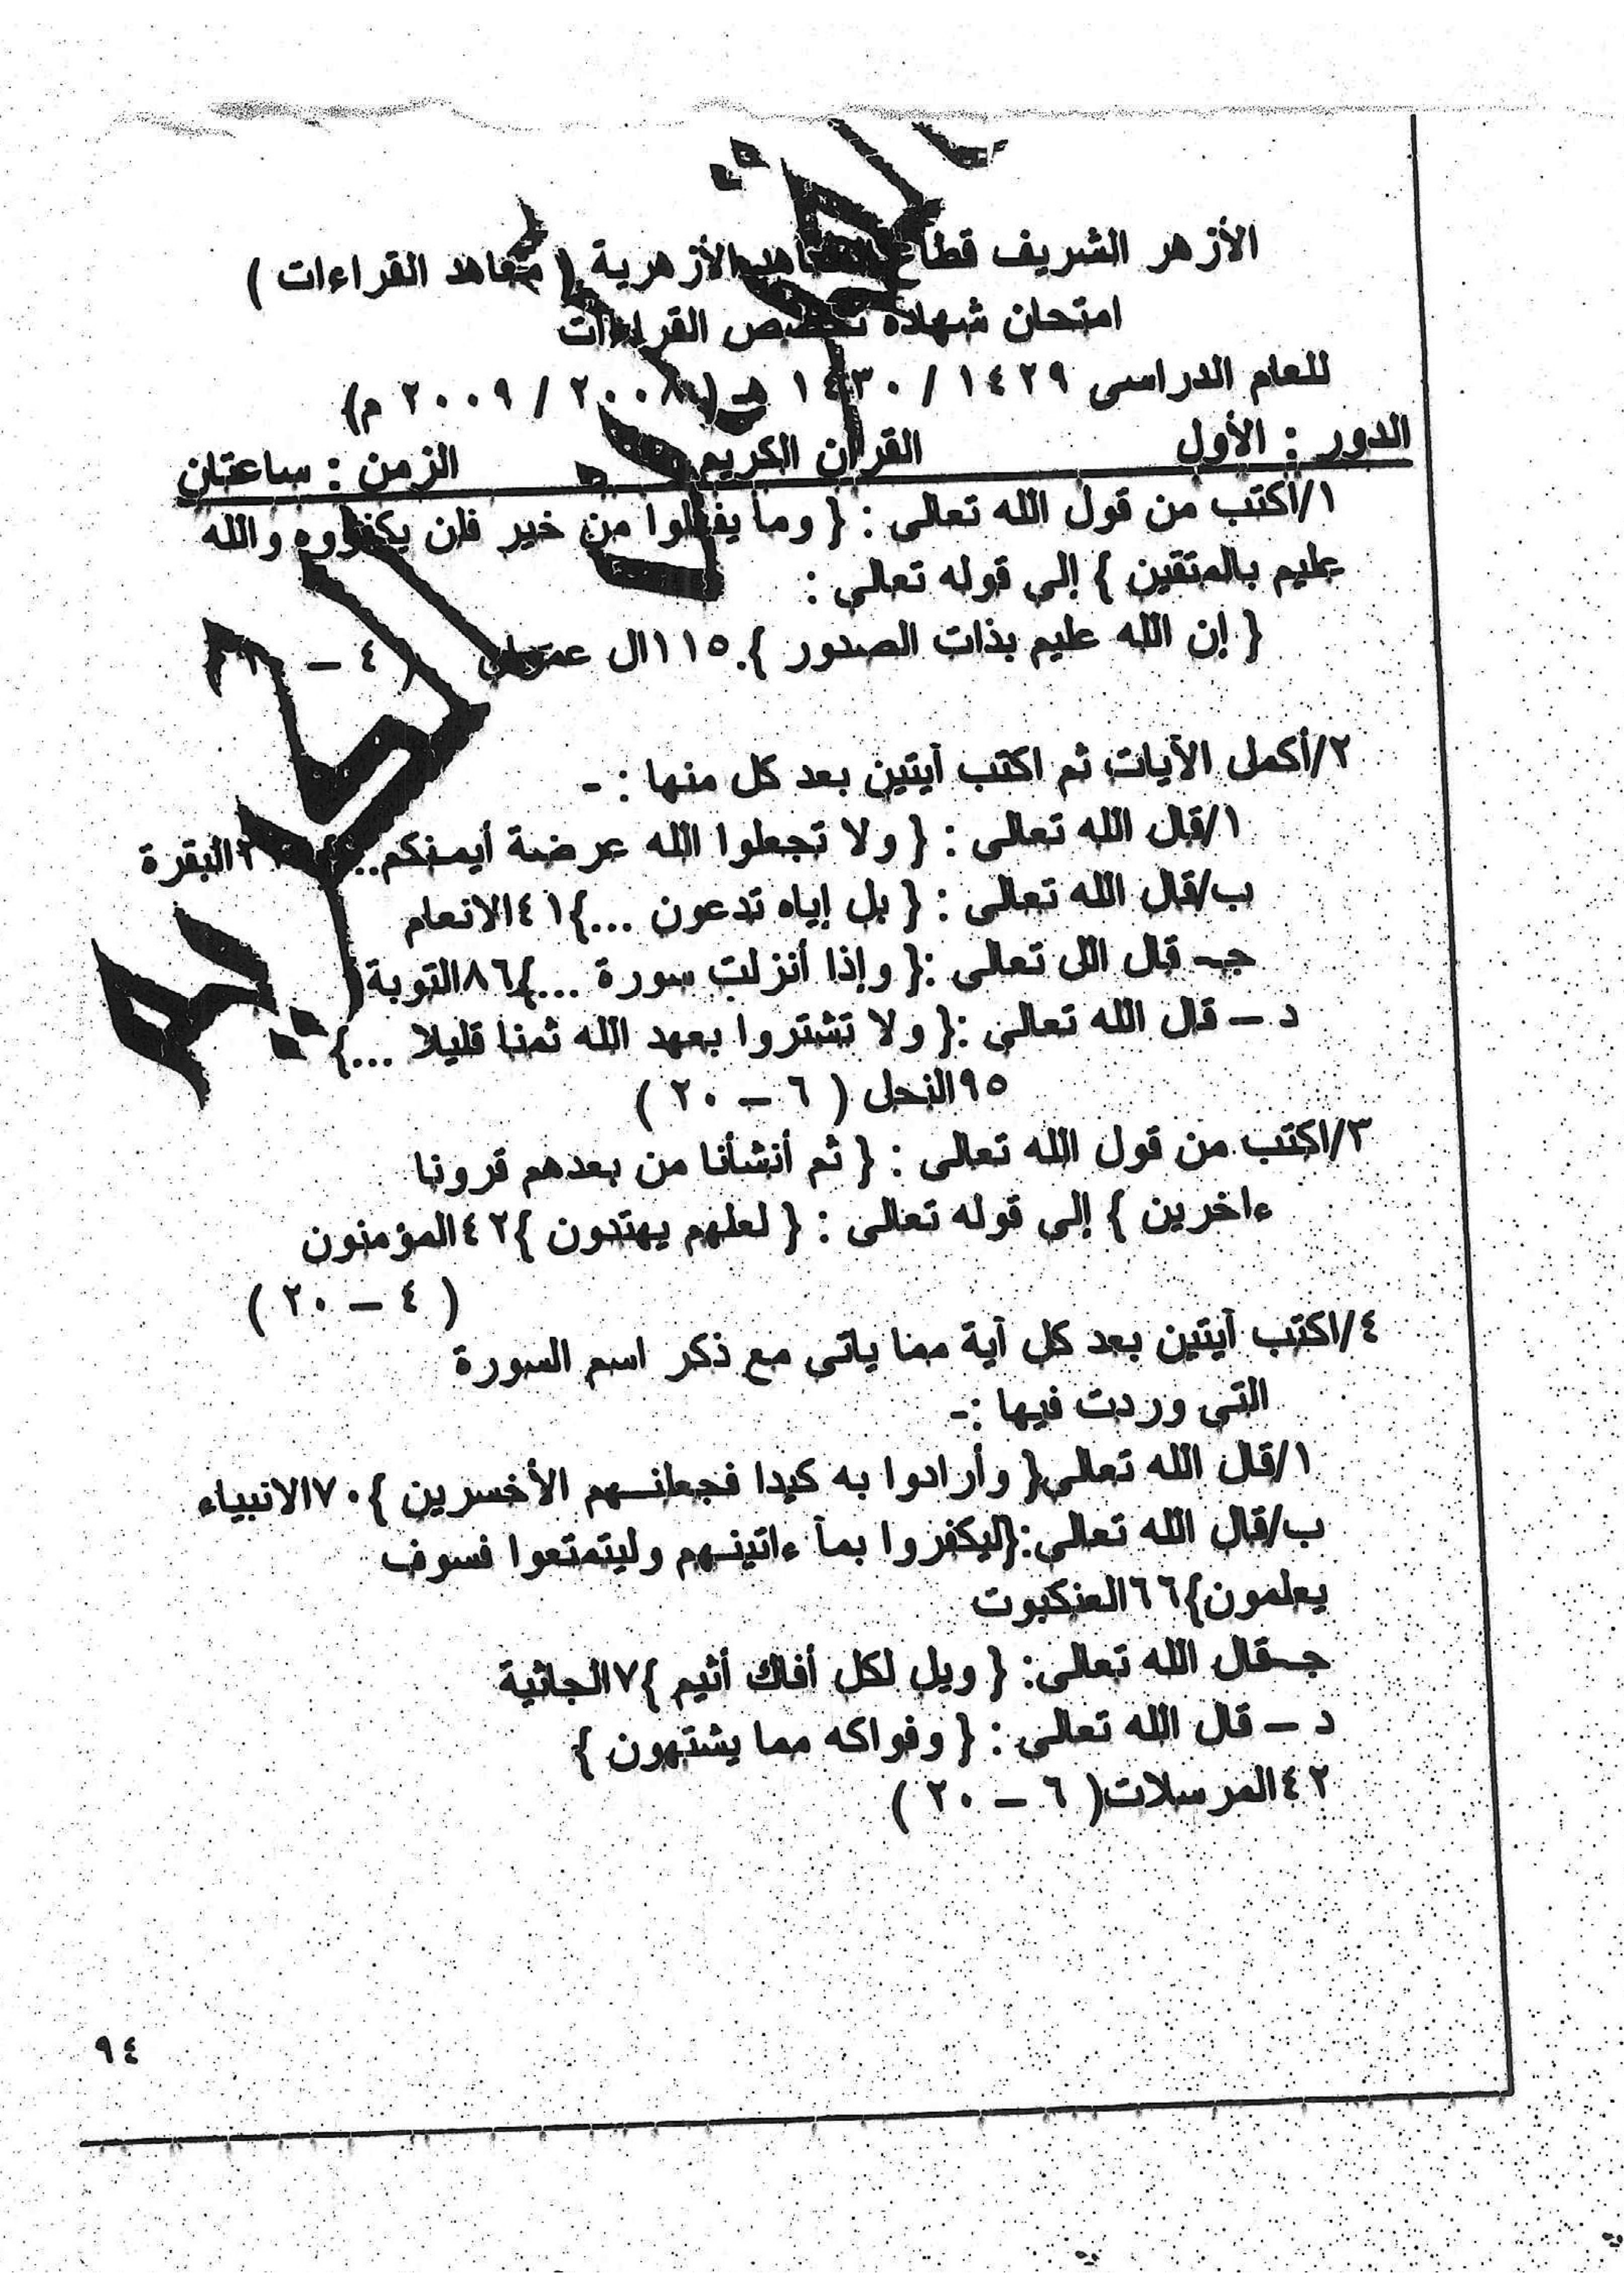 الأزهر الشريف قطاع المعاهد الأزهرية ( معاهد القراءات )
امتحان شهادة تخصص القراءات
للعام الدراسى ١٤٢٩ / ١٤٣٠ هـ ( ٢٠٠٨ / ٢٠٠٩ م)
الدور : الأول القرآن الكريم الزمن : ساعتان
١/اكتب من قول الله تعالى : { وما يفعلوا من خير فلن يكفروه والله
عليم بالمتقين } إلى قوله تعالى :
{ إن الله عليم بذات الصدور }.١١٥ال عمران ( ٤ –
٢/أكمل الآيات ثم اكتب آيتين بعد كل منها : -
١/قال الله تعالى : { ولا تجعلوا الله عرضة أيمـنكم.. البقرة
ب/قال الله تعالى : { بل إياه تدعون ...}٤١الانعام
جـ- قال اللى تعالى :{ وإذا أنزلت سورة ...}٨٦التوبة
د – قال الله تعالى :{ ولا تشتروا بعهد الله ثمنا قليلا ...}
٩٥النحل ( ٦ – ٢٠ )
٣/اكتب من قول الله تعالى : { ثم أنشأنا من بعدهم قرونا
ءاخرين } إلى قوله تعالى : { لعلهم يهتدون }٤٢المؤمنون
( ٤ – ٢٠ )
٤/اكتب آيتين بعد كل آية مما ياتى مع ذكر اسم السورة
التى وردت فيها :-
١/قال الله تعالى{ وأرادوا به كيدا فجعلنـهم الأخسرين }٧٠الانبياء
ب/قال الله تعالى:{ليكفروا بمآ ءاتينـهم وليتمتعوا فسوف
يعلمون}٦٦العنكبوت
جـقال الله تعالى: { ويل لكل أفاك أثيم }٧الجاثية
د – قال الله تعالى : { وفواكه مما يشتهون }
٤٢المرسلات( ٦ – ٢٠ )
٩٤